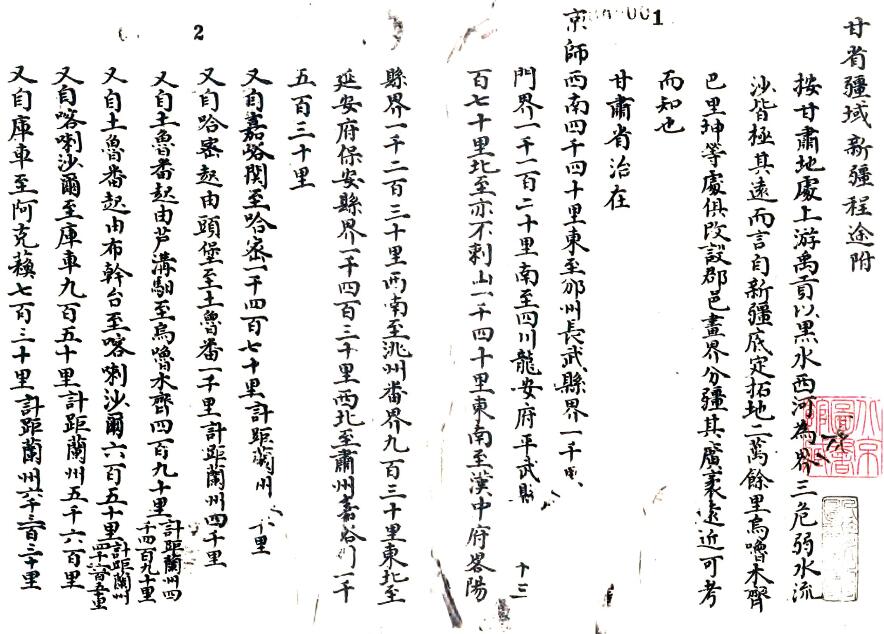 甘省疆域新疆程途附
按甘肅地處上游禹貢以黑水西河為界三危弱水流
沙皆極其遠而言自新疆底定拓地二萬餘里烏嚕木齊
巴里坤等處俱改設郡邑畫界分疆其廣袤遠近可考
而知也
甘肅省治在
京師西南四千四十里東至邠州長武縣界一千
門界一千一百二十里南至四川龍安府平武
百七十里北至亦不剌山一千四十里東南至漢中府畧陽
縣界一千二百三十里西南至洮州番界九百三十里東北至
延安府保安縣界一千四百三十里西北至肅州嘉峪 一千
五百三十里
又自嘉峪関至哈密一千四百七十里計距蘭州 里
又自哈密起由頭堡至土魯番一千里計距蘭州四千里
又自土魯番起由芦溝駅至烏嚕木齊四百九十里計距蘭州四千四百九十里
又自土魯番起由布幹台至喀喇沙爾六百五十里計距蘭州四千六百五十里
又自喀喇沙爾至庫車九百五十里計距蘭州五千六百里
又自庫車至阿克蘓七百三十里計距蘭州六千三百三十里
1
2